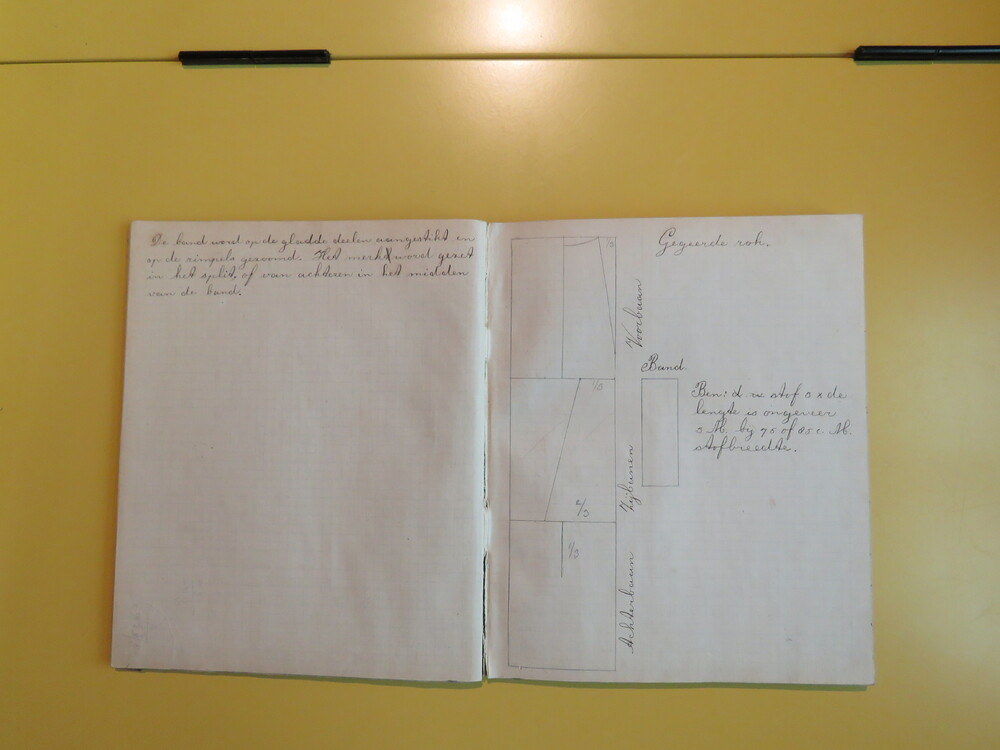 De band word op de gladde deelen aangestikt en
op de rimpels gezoomd. Het merk word gezet
in het split, of van achteren in het midden
van de band.
Gegeerde rok.
1/10
Voorbaan
Band.
1/10
Ben: d stof 3 x de
lengte is ongeveer
3 M. by 75 of 85 c. M.
stofbreedte.
Zijbanen
2/3
1/3
Achterbaan